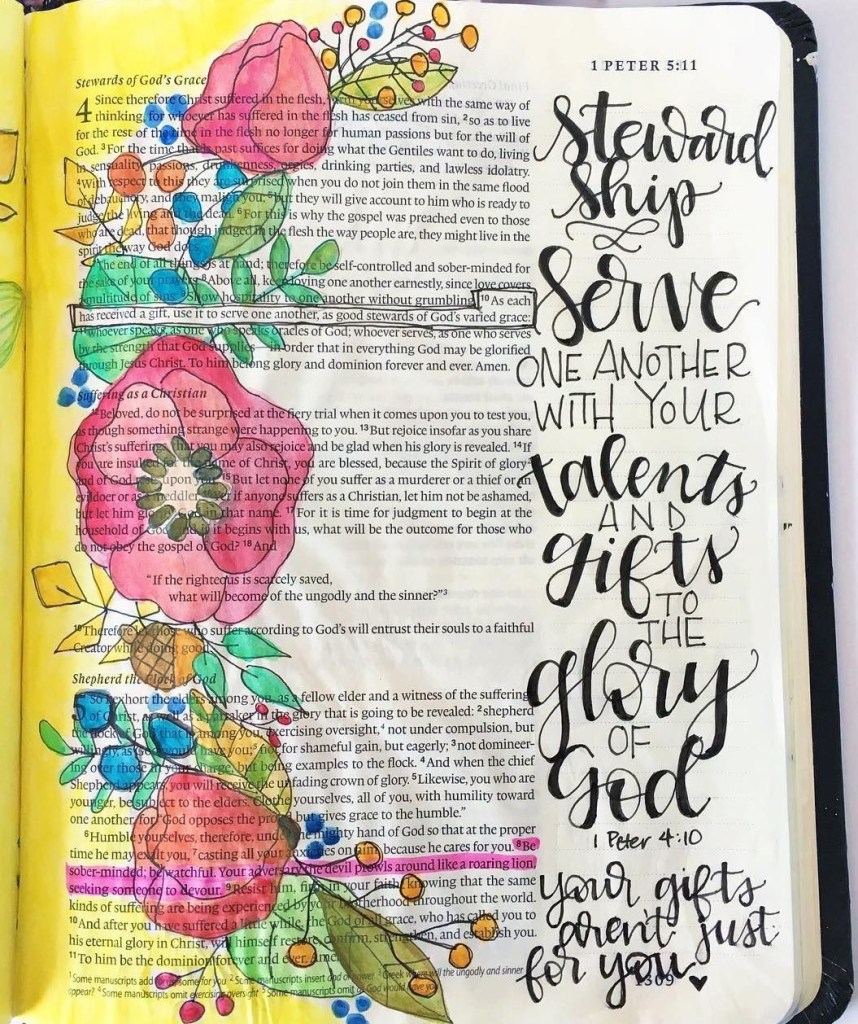 1 PETER 5:11
Stewards of God's Grace
4 Since therefore Christ suffered in the flesh, arm yourselves with the same way of
thinking, for whoever has suffered in the flesh has ceased from sin, ²so as to live
for the rest of the time in the flesh no longer for human passions but for the will of
God. ³For the time that is past suffices for doing what the Gentiles want to do, living
in sensuality, passions, drunkenness, orgies, drinking parties, and lawless idolatry.
⁴With respect to this they are surprised when you do not join them in the same flood
of debauchery, and they malign you; ⁵but they will give account to him who is ready to
judge the living and the dead. ⁶For this is why the gospel was preached even to those
who are dead, that though judged in the flesh the way people are, they might live in the
spirit the way God does.
⁷The end of all things is at hand; therefore be self-controlled and sober-minded for
the sake of your prayers. ⁸Above all, keep loving one another earnestly, since love covers
a multitude of sins. ⁹Show hospitality to one another without grumbling. ¹⁰As each
has received a gift, use it to serve one another, as good stewards of God's varied grace:
¹¹whoever speaks, as one who speaks oracles of God; whoever serves, as one who serves
by the strength that God supplies—in order that in everything God may be glorified
through Jesus Christ. To him belong glory and dominion forever and ever. Amen.
Suffering as a Christian
¹²Beloved, do not be surprised at the fiery trial when it comes upon you to test you,
as though something strange were happening to you. ¹³But rejoice insofar as you share
Christ's sufferings, that you may also rejoice and be glad when his glory is revealed. ¹⁴If
you are insulted for the name of Christ, you are blessed, because the Spirit of glory²
and of God rests upon you. ¹⁵But let none of you suffer as a murderer or a thief or an
evildoer or as a meddler. if anyone suffers as a Christian, let him not be ashamed,
but let him glorify God in that name. ¹⁷For it is time for judgment to begin at the
household of God; and if it begins with us, what will be the outcome for those who
do not obey the gospel of God? ¹⁸And
"If the righteous is scarcely saved,
what will become of the ungodly and the sinner?"³
¹⁹Therefore let those who suffer according to God's will entrust their souls to a faithful
Creator while doing good.
Shepherd the Flock of God
So I exhort the elders among you, as a fellow elder and a witness of the sufferings
of Christ, as well as a partaker in the glory that is going to be revealed: ²shepherd
the flock of God that is among you, exercising oversight,⁴ not under compulsion, but
willingly, as God would have you;⁵ not for shameful gain, but eagerly; ³not domineer-
ing over those in your charge, but being examples to the flock. ⁴And when the chief
Shepherd appears, you will receive the unfading crown of glory. ⁵Likewise, you who are
younger, be subject to the elders. Clothe yourselves, all of you, with humility toward
one another, for "God opposes the proud but gives grace to the humble."
⁶Humble yourselves, therefore, under the mighty hand of God so that at the proper
time he may exalt you, ⁷casting all your anxieties on him, because he cares for you. ⁸Be
sober-minded; be watchful. Your adversary the devil prowls around like a roaring lion,
seeking someone to devour. ⁹Resist him, firm in your faith, knowing that the same
kinds of suffering are being experienced by your brotherhood throughout the world.
¹⁰And after you have suffered a little while, the God of all grace, who has called you to
his eternal glory in Christ, will himself restore, confirm, strengthen, and establish you.
¹¹To him be the dominion forever and ever. Amen.
¹Some manuscripts add for you ²Some manuscripts insert and of power ³Greek where will the ungodly and sinner
appear? ⁴Some manuscripts omit exercising oversight ⁵Some manuscripts omit as God would have you
steward
ship
Serve
ONE ANOTHER
WITH YOUR
talents
AND
gifts
TO
THE
glory
OF
God
1 Peter 4:10
your gifts
aren't just
for you.
1309